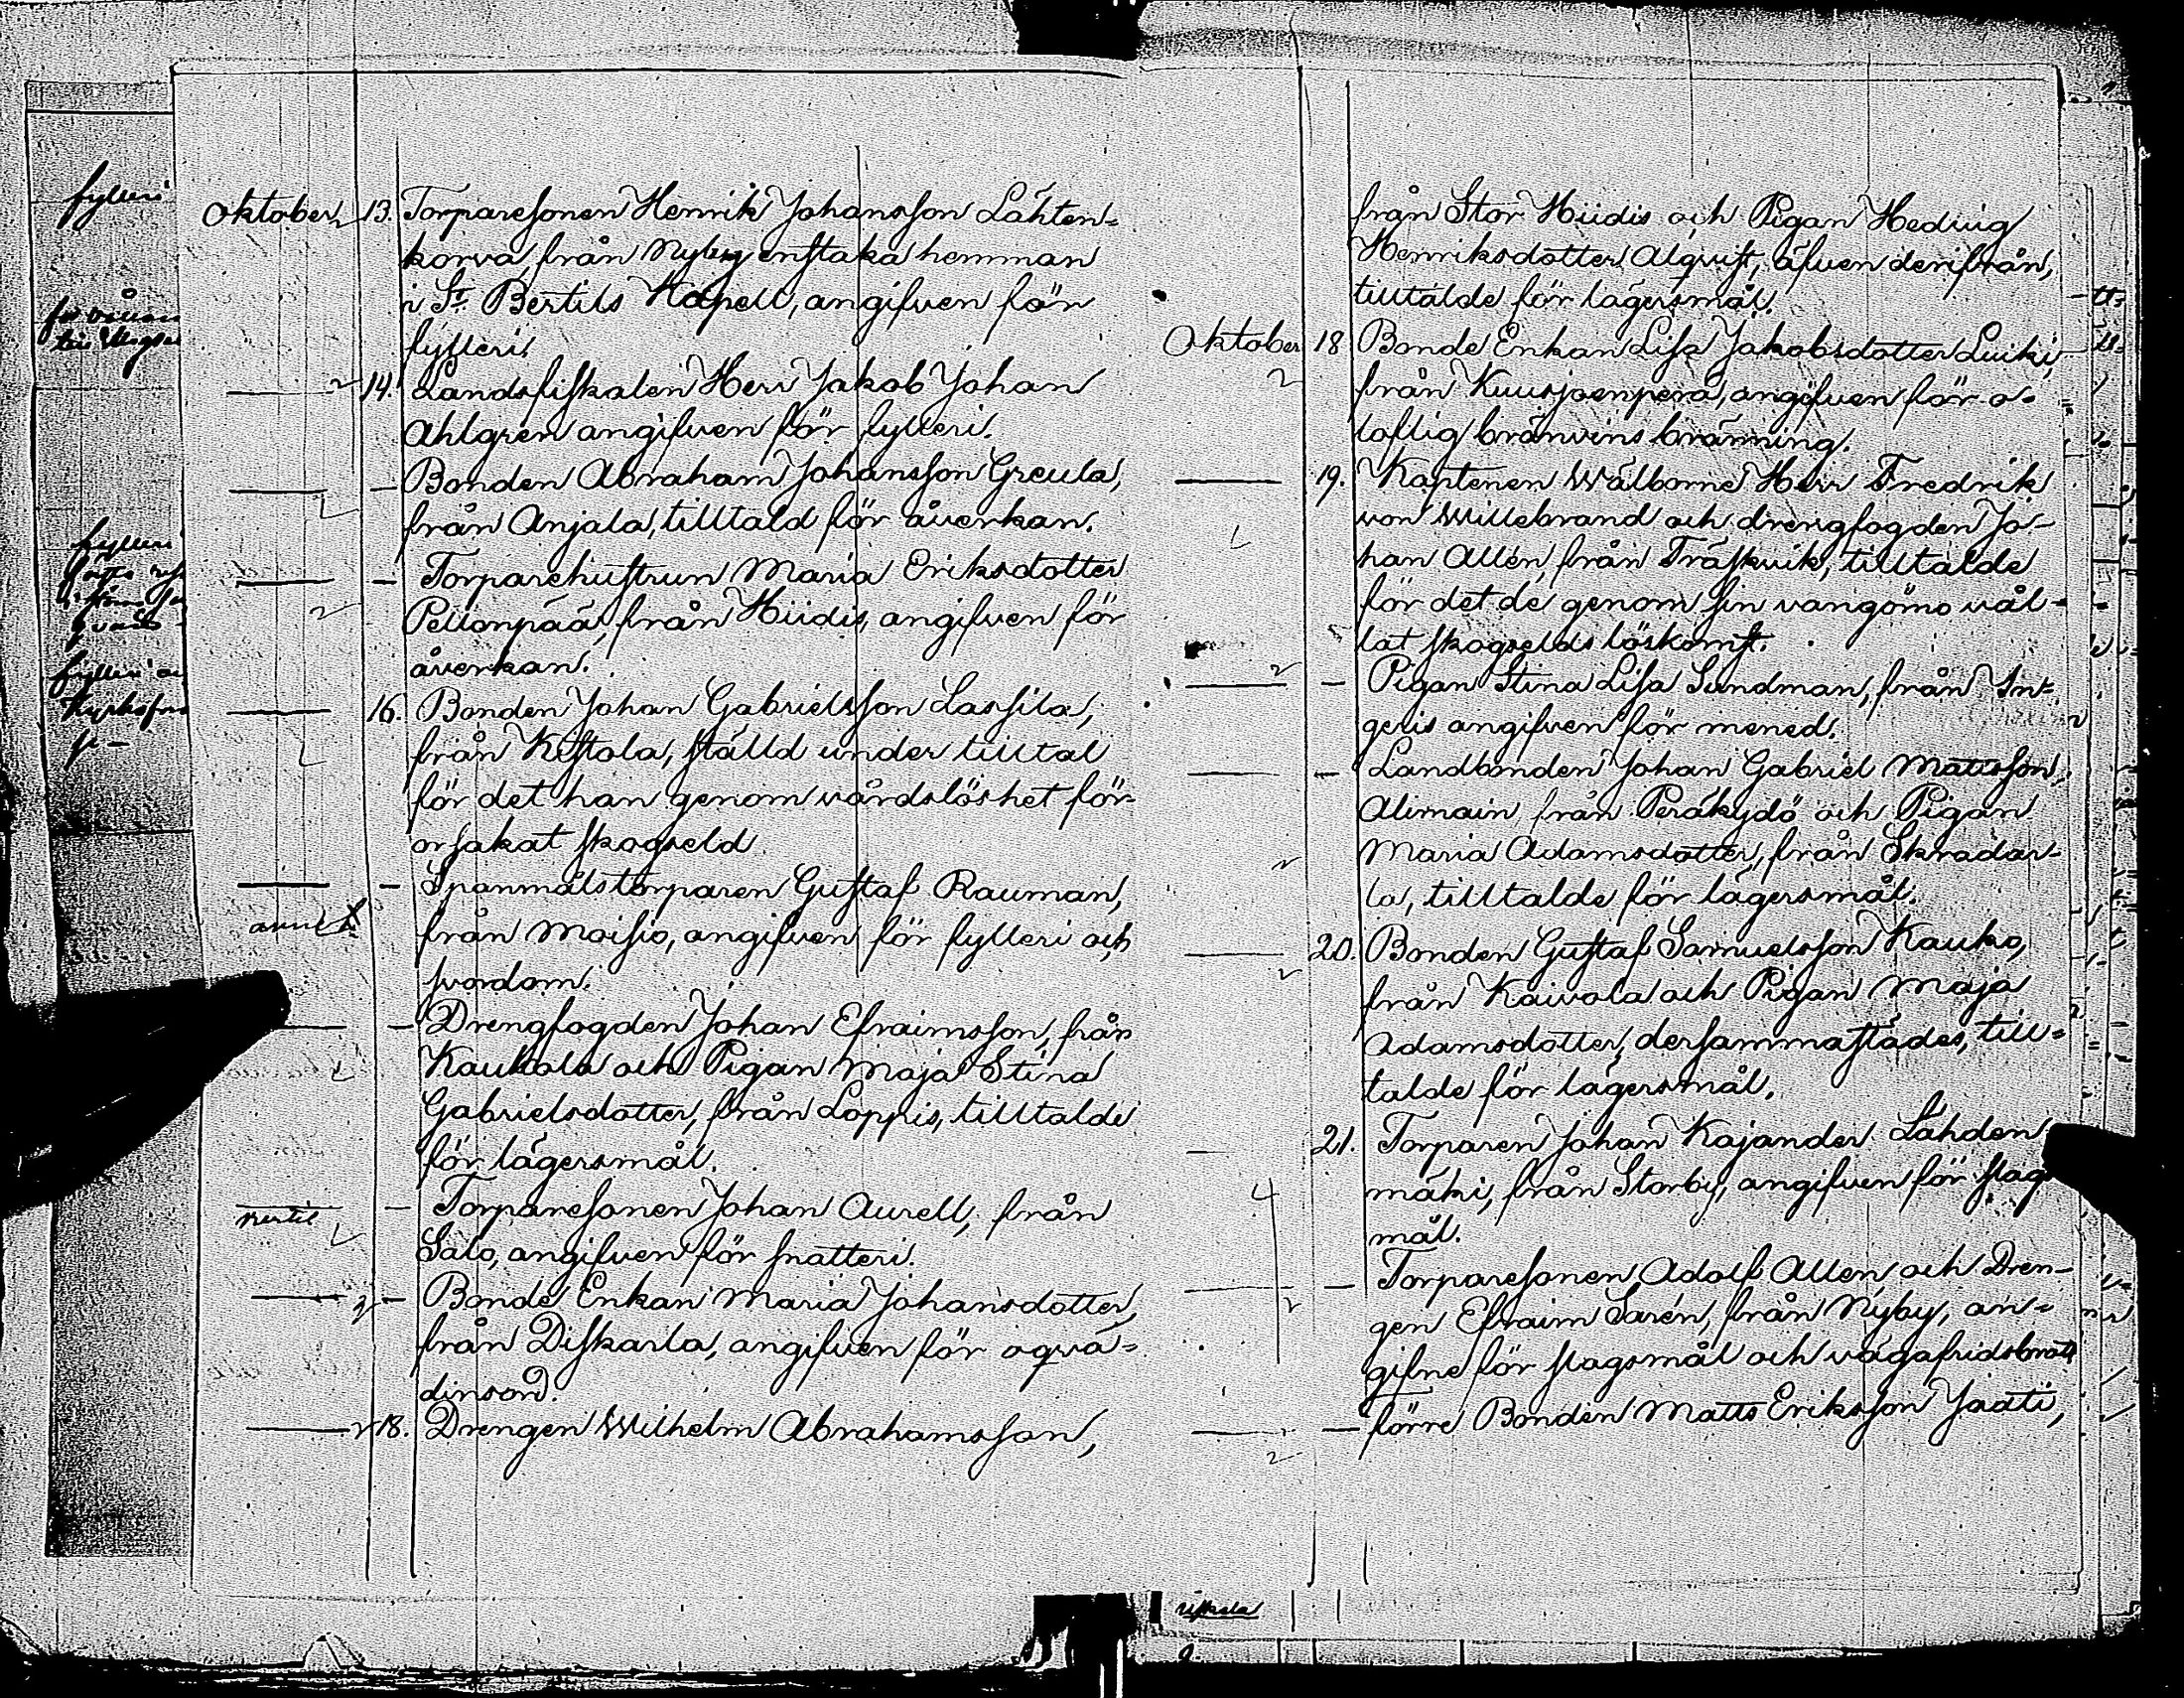 Oktober 13. Torparesonen Henrik Johansson Lähten-
korva, från Nyby enstaka hemman
i St. Bertils Kapell, angifven för
fylleri.
14. Landsfiskalen Herr Jakob Johan
Ahlgren angifven för fylleri.
— Bonden Abraham Johansson Greula,
från Anjala, tilltald för åverkan.
— Torparehustrun Maria Eriksdotter
Pellonpää, från Hiidis, angifven för
åverkan.
16. Bonden Johan Gabrielsson Lassila,
från Kistola, ställd under tilltal
för det han genom vårdslöshet för-
orsakat skogseld.
— Spanmålstorparen Gustaf Rauman,
från Moisio, angifven för fylleri och
svordom.
— Drengfogden Johan Efraimsson, från
Kaukola och Pigan Maja Stina
Gabrielsdotter, från Loppis, tilltalde
för lägersmål.
— Torparesonen Johan Aurell, från
Salo, angifven för snatteri.
— Bonde Enkan Maria Johansdotter,
från Diskarla, angifven för oqvä-
dinsord.
18. Drengen Wilhelm Abrahamsson,
från Stor Hiidis och Pigan Hedvig
Henriksdotter Alqvist, äfven derifrån,
tilltalde för lägersmål.
Oktober 18 Bonde Enkan Lisa Jakobsdotter Luiki,
från Kuusjoenperä, angifven för o-
loflig bränvins bränning.
19. Kaptenen Wälborne Herr Fredrik
von Willebrand och drengfogden Jo-
han Allén, från Träskvik, tilltalde
för det de genom sin vangömo vål-
lat skogselds löskomst.
— Pigan Stina Lisa Sundman, från In-
geris angifven för mened.
— Landbonden Johan Gabriel Mattsson
Alimain från Peräkydö och Pigan
Maria Adamsdotter, från Skradar-
la, tilltalde för lägersmål.
20. Bonden Gustaf Samuelsson Kauko,
från Kaivola och Pigan Maja
Adamsdotter, dersammastädes, till-
talde för lägersmål.
21. Torparen Johan Kajander Lähden
mäki, från Storby, angifven för slags
mål.
— Torparesonen Adolf Allen och Dren-
gen Efraim Sarén, från Nyby, an-
gifne för slagsmål och vägafridsbrott
— förre Bonden Matts Eriksson Jaati,